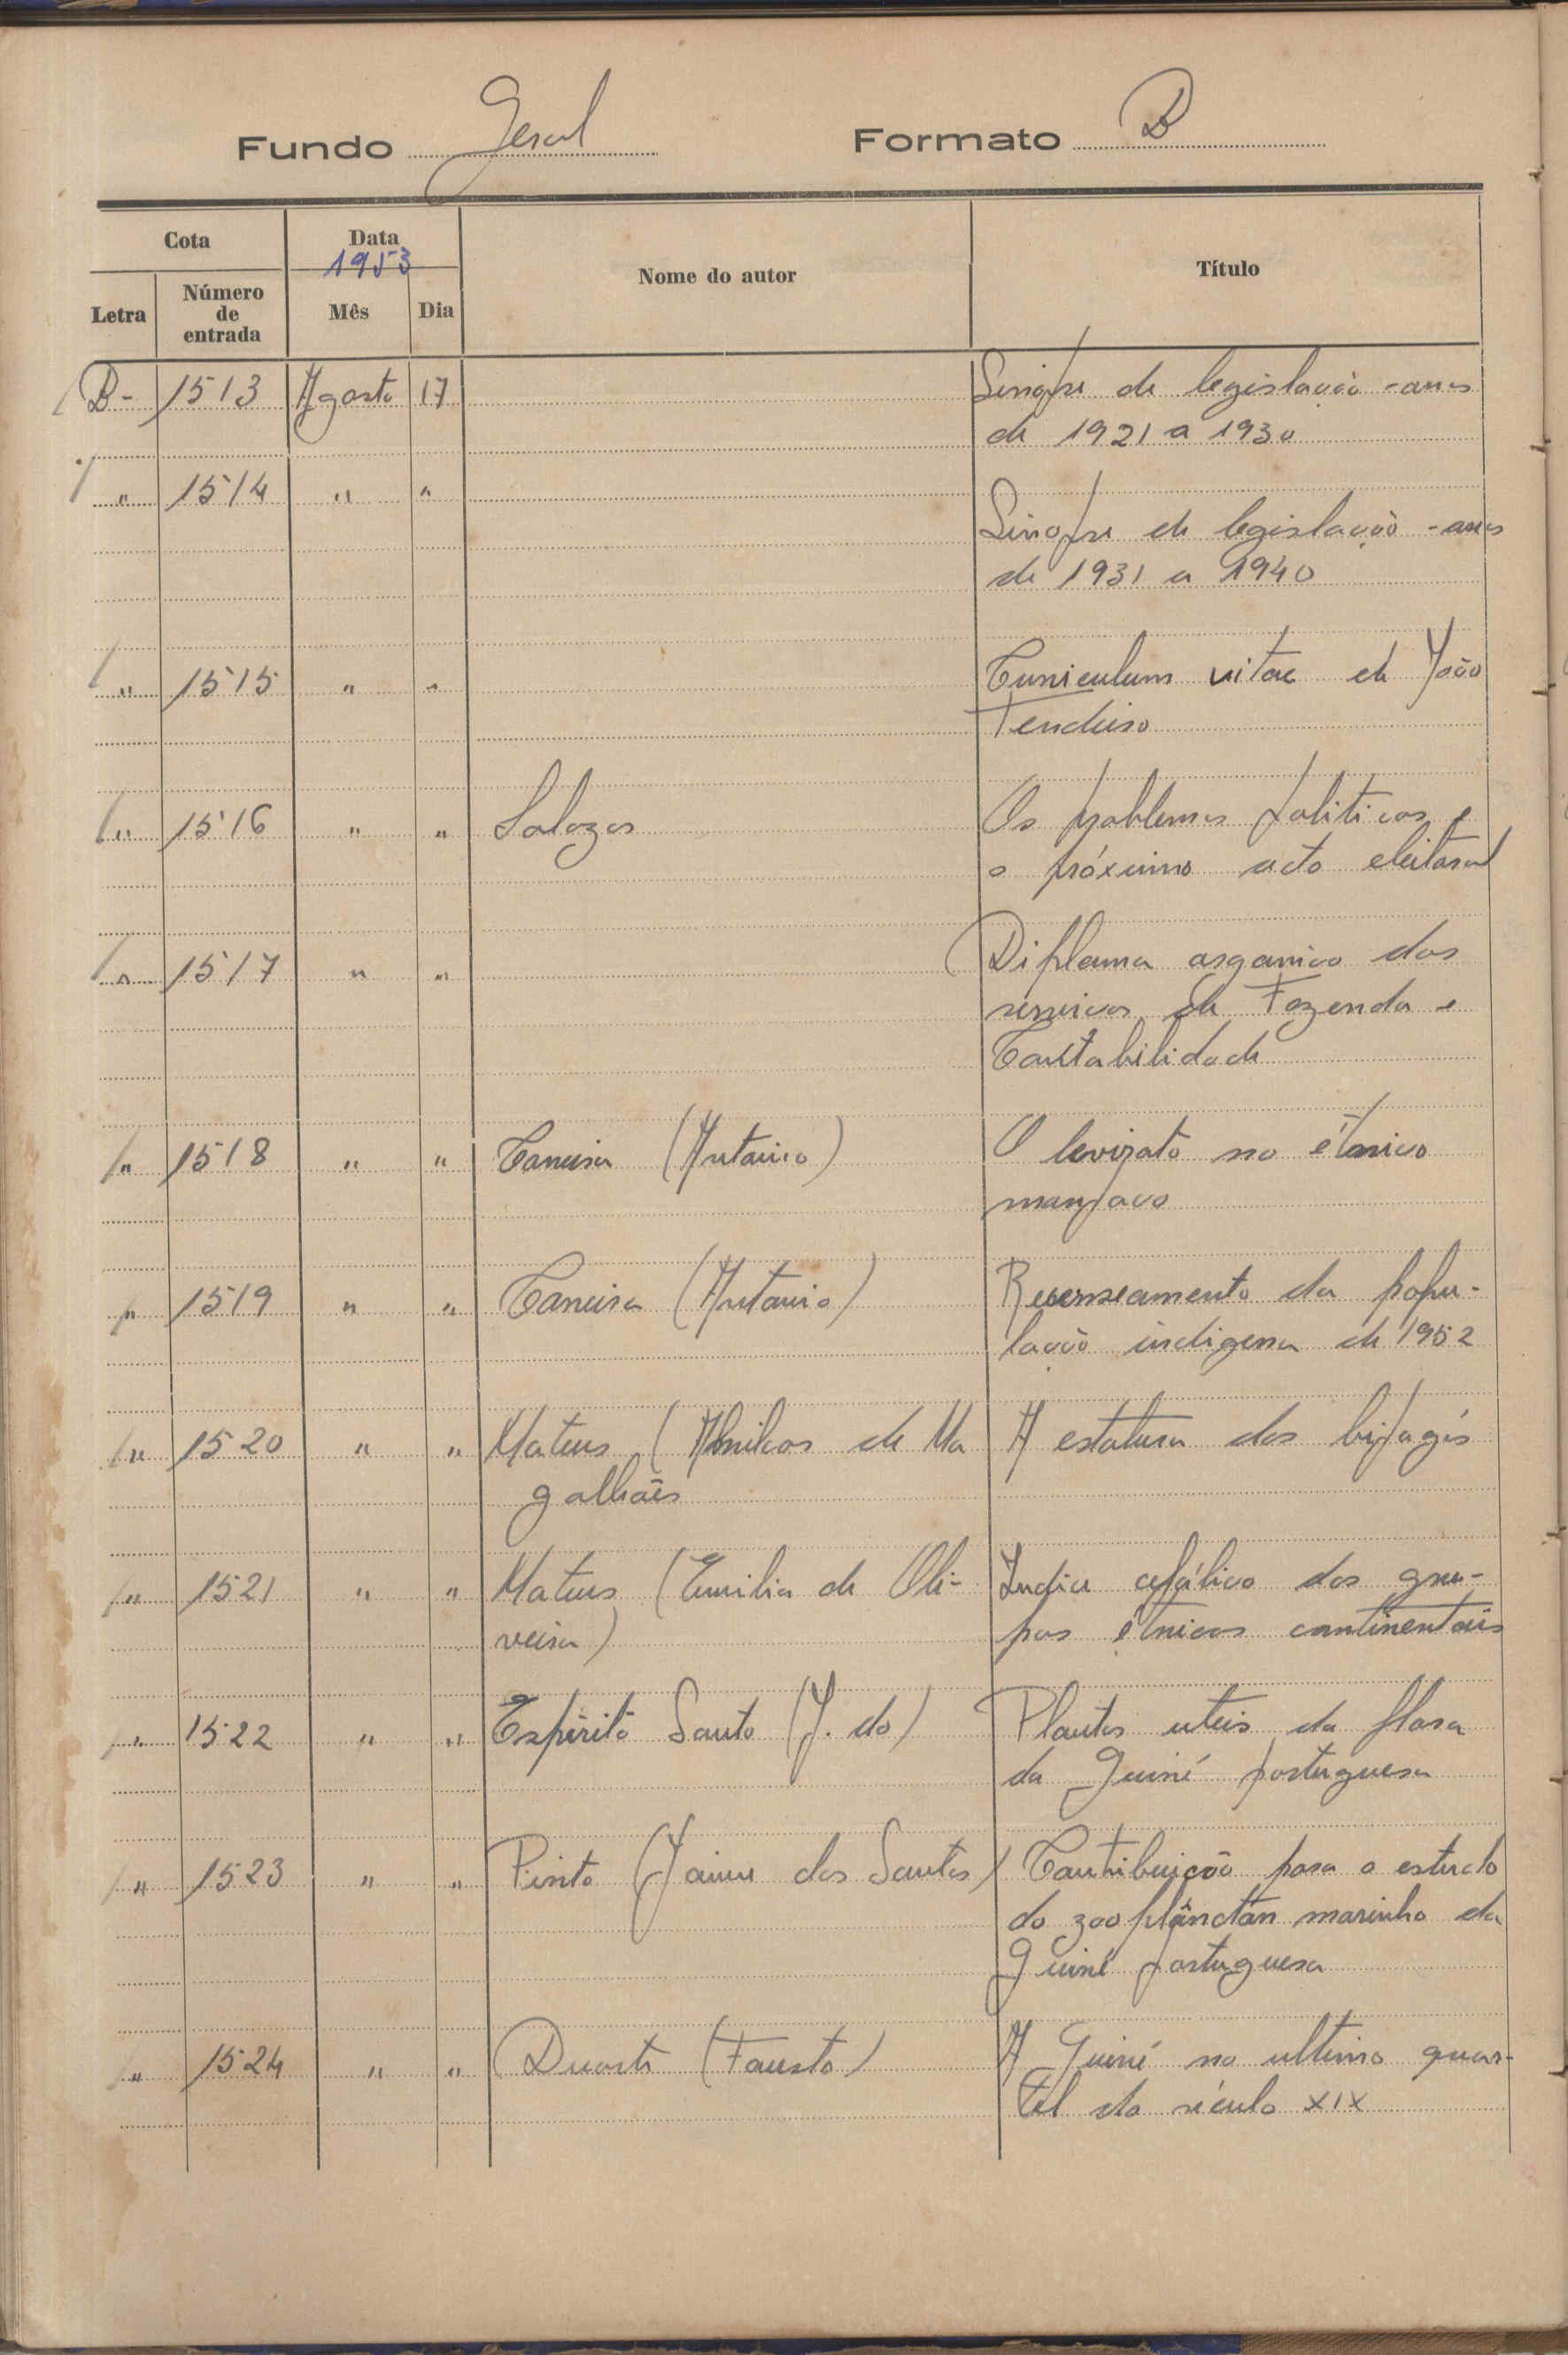 Fundo Geral Formato B
Cota Data Nome do autor Título
1953
Letra Número de entrada Mês Dia
B- 1513 Agosto 17 Sinopse de legislação - anos
de 1921 a 1930
" 1514 " " Sinopse de legislação - anos
de 1931 a 1940
" 1515 " " Curriculum vitae de João
Tendeiro
" 1516 " " Salazar Os problemas politicos e
o próximo acto eleitoral
" 1517 " " Diploma organico dos
serviços de Fazenda e
Contabilidade
" 1518 " " Carreira (Antonio) O levirato no étnico
manjaco
" 1519 " " Carreira (Antonio) Recenseamento da popu-
lação indigena de 1952
" 1520 " " Mateus (Amilcar de Ma A estatura dos bijagós
galhães
" 1521 " " Mateus (Emilia de Oli- Indice cefálico dos gru-
veira) pos étnicos continentais
" 1522 " " Espírito Santo (J. do) Plantas uteis da flora
da Guiné portuguesa
" 1523 " " Pinto (Jaime dos Santos) Contribuição para o estudo
do zooplâncton marinho da
Guiné portuguesa
" 1524 " " Duarte (Fausto) A Guiné no ultimo quar-
tel do século XIX